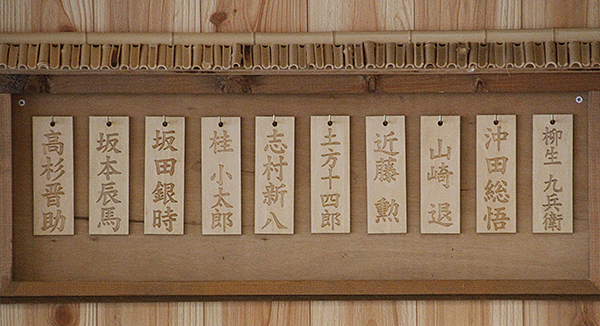 柳生 九兵衛
沖田総悟
山崎 退
近藤 勲
土方十四郎
志村新八
桂 小太郎
坂田銀時
坂本辰馬
高杉晋助